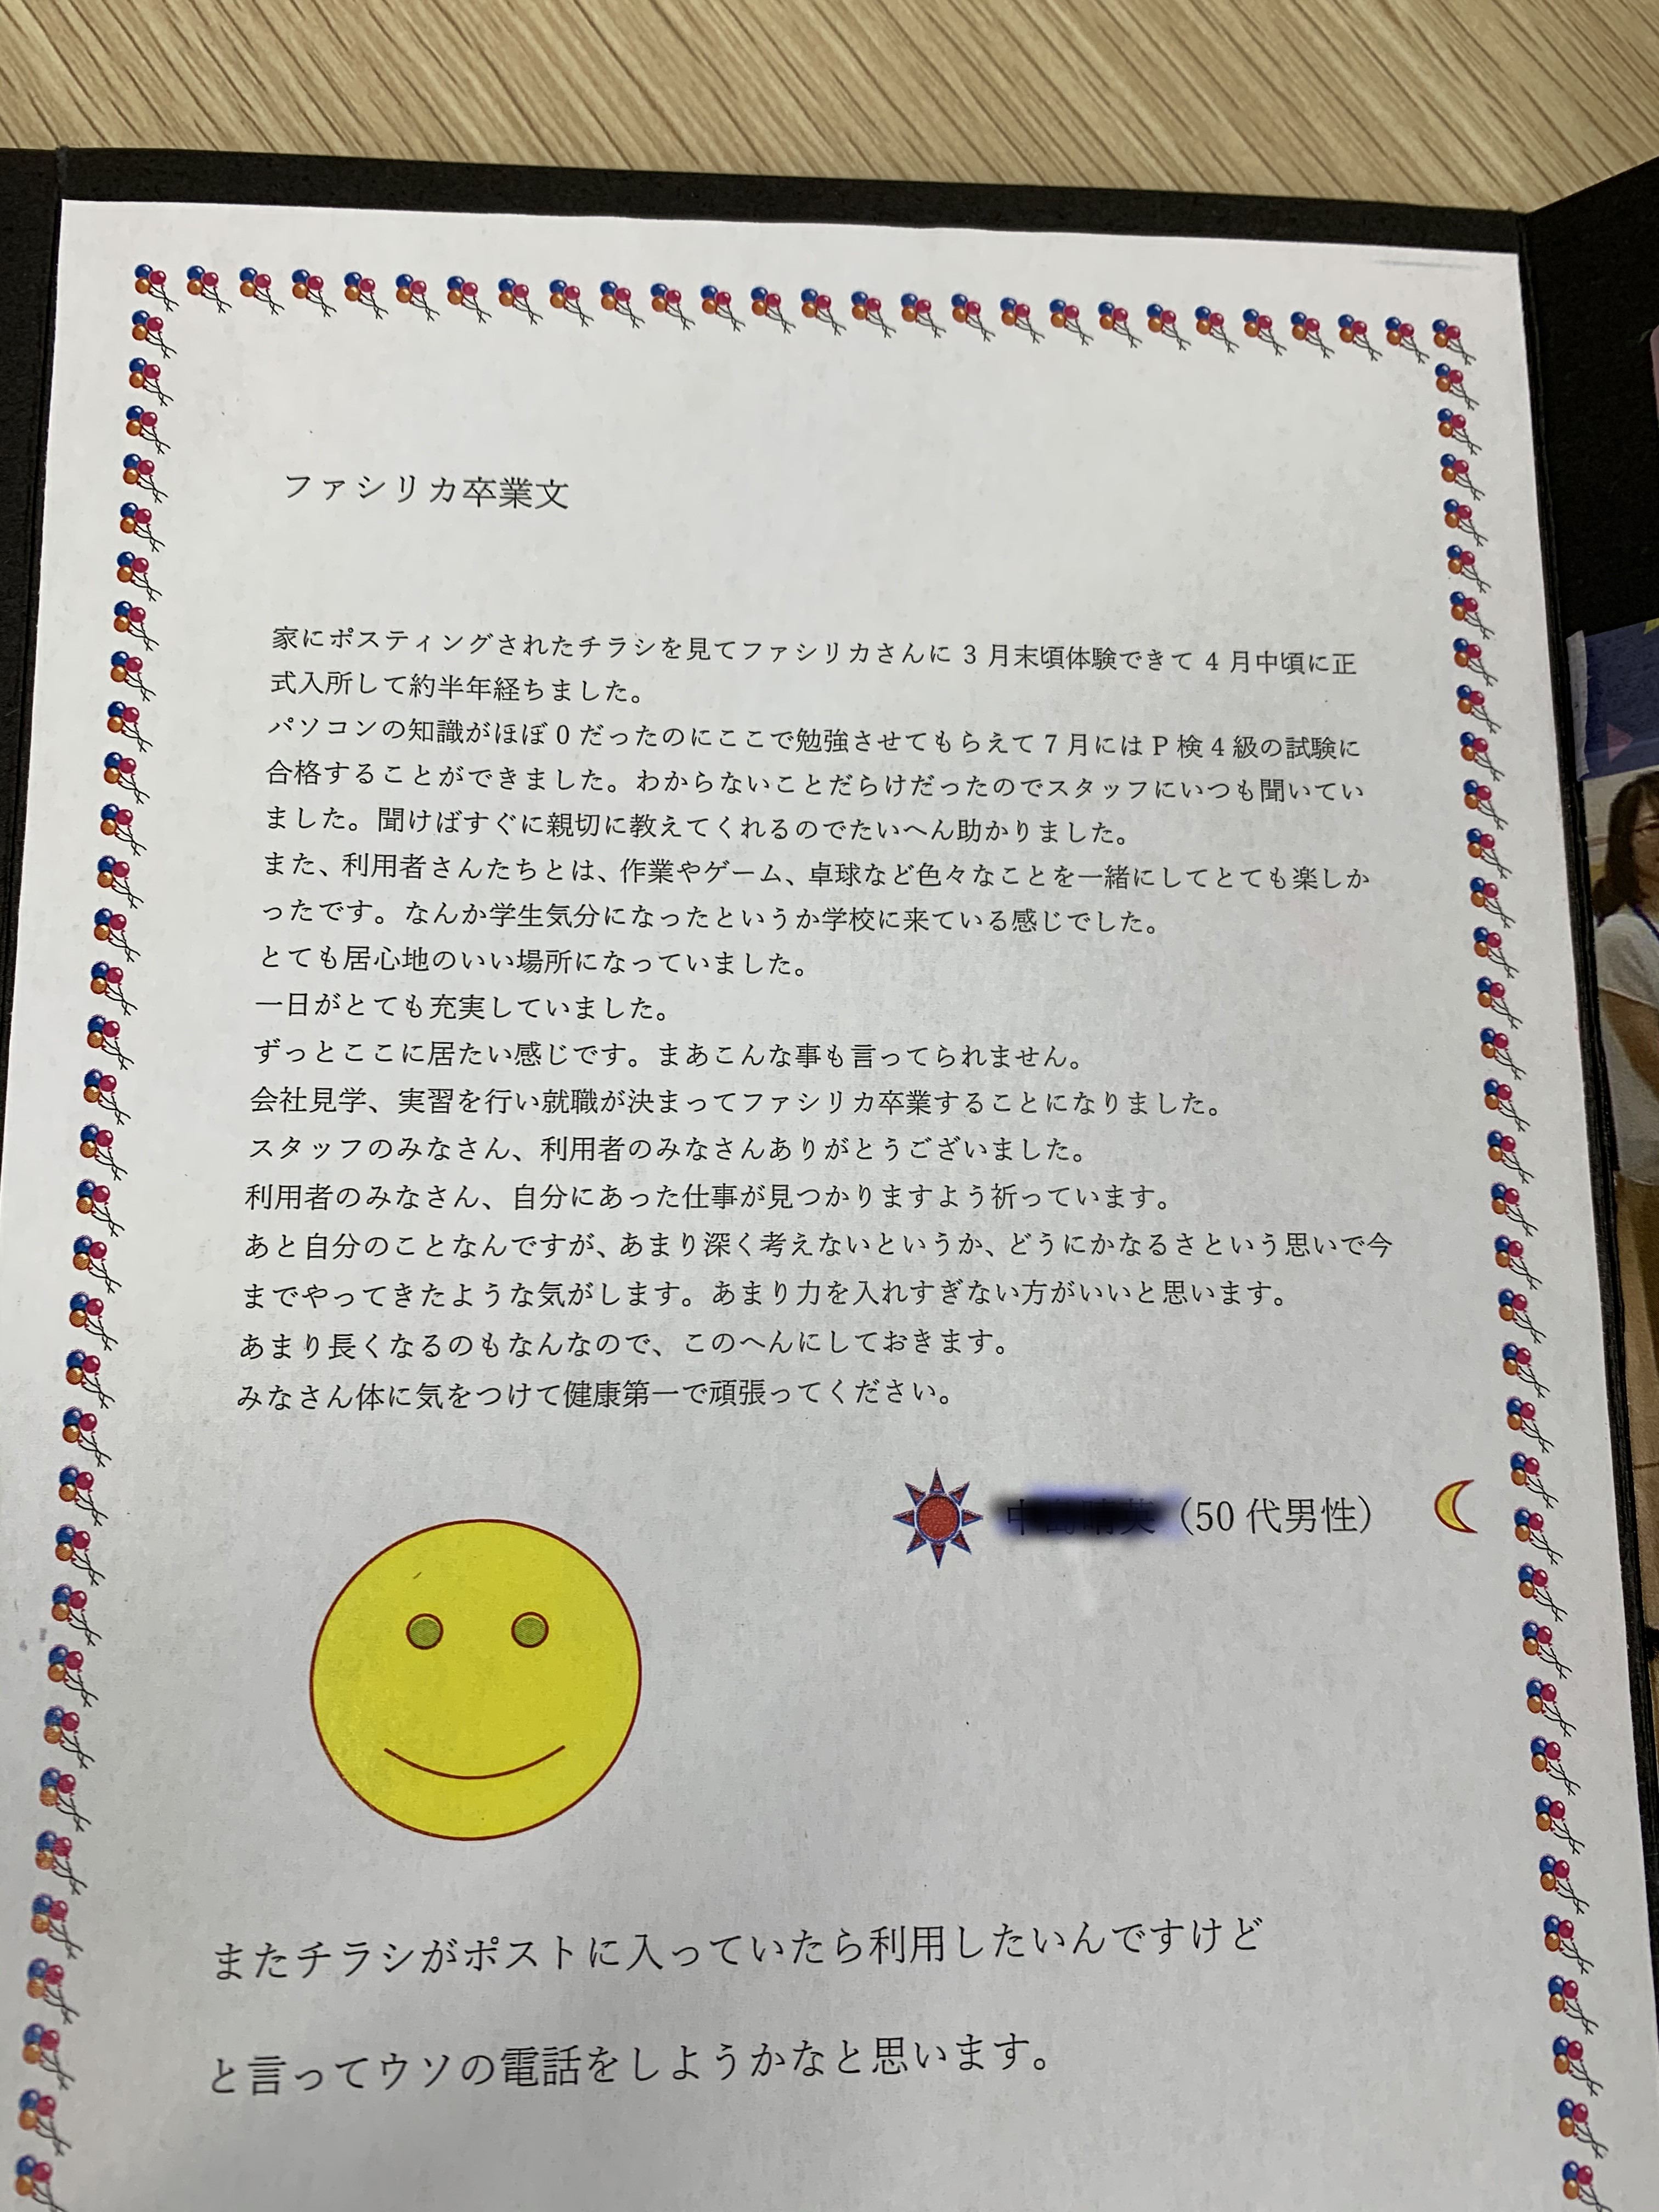 ファシリカ卒業文
家にポスティングされたチラシを見てファシリカさんに 3 月末頃体験できて 4 月中頃に正
式入所して約半年経ちました。
パソコンの知識がほぼ 0 だったのにここで勉強させてもらえて 7 月には P 検 4 級の試験に
合格することができました。わからないことだらけだったのでスタッフにいつも聞いてい
ました。聞けばすぐに親切に教えてくれるのでたいへん助かりました。
また、利用者さんたちとは、作業やゲーム、卓球など色々なことを一緒にしてとても楽しか
ったです。なんか学生気分になったというか学校に来ている感じでした。
とても居心地のいい場所になっていました。
一日がとても充実していました。
ずっとここに居たい感じです。まあこんな事も言ってられません。
会社見学、実習を行い就職が決まってファシリカ卒業することになりました。
スタッフのみなさん、利用者のみなさんありがとうございました。
利用者のみなさん、自分にあった仕事が見つかりますよう祈っています。
あと自分のことなんですが、あまり深く考えないというか、どうにかなるさという思いで今
までやってきたような気がします。あまり力を入れすぎない方がいいと思います。
あまり長くなるのもなんなので、このへんにしておきます。
みなさん体に気をつけて健康第一で頑張ってください。
（50 代男性）
またチラシがポストに入っていたら利用したいんですけど
と言ってウソの電話をしようかなと思います。